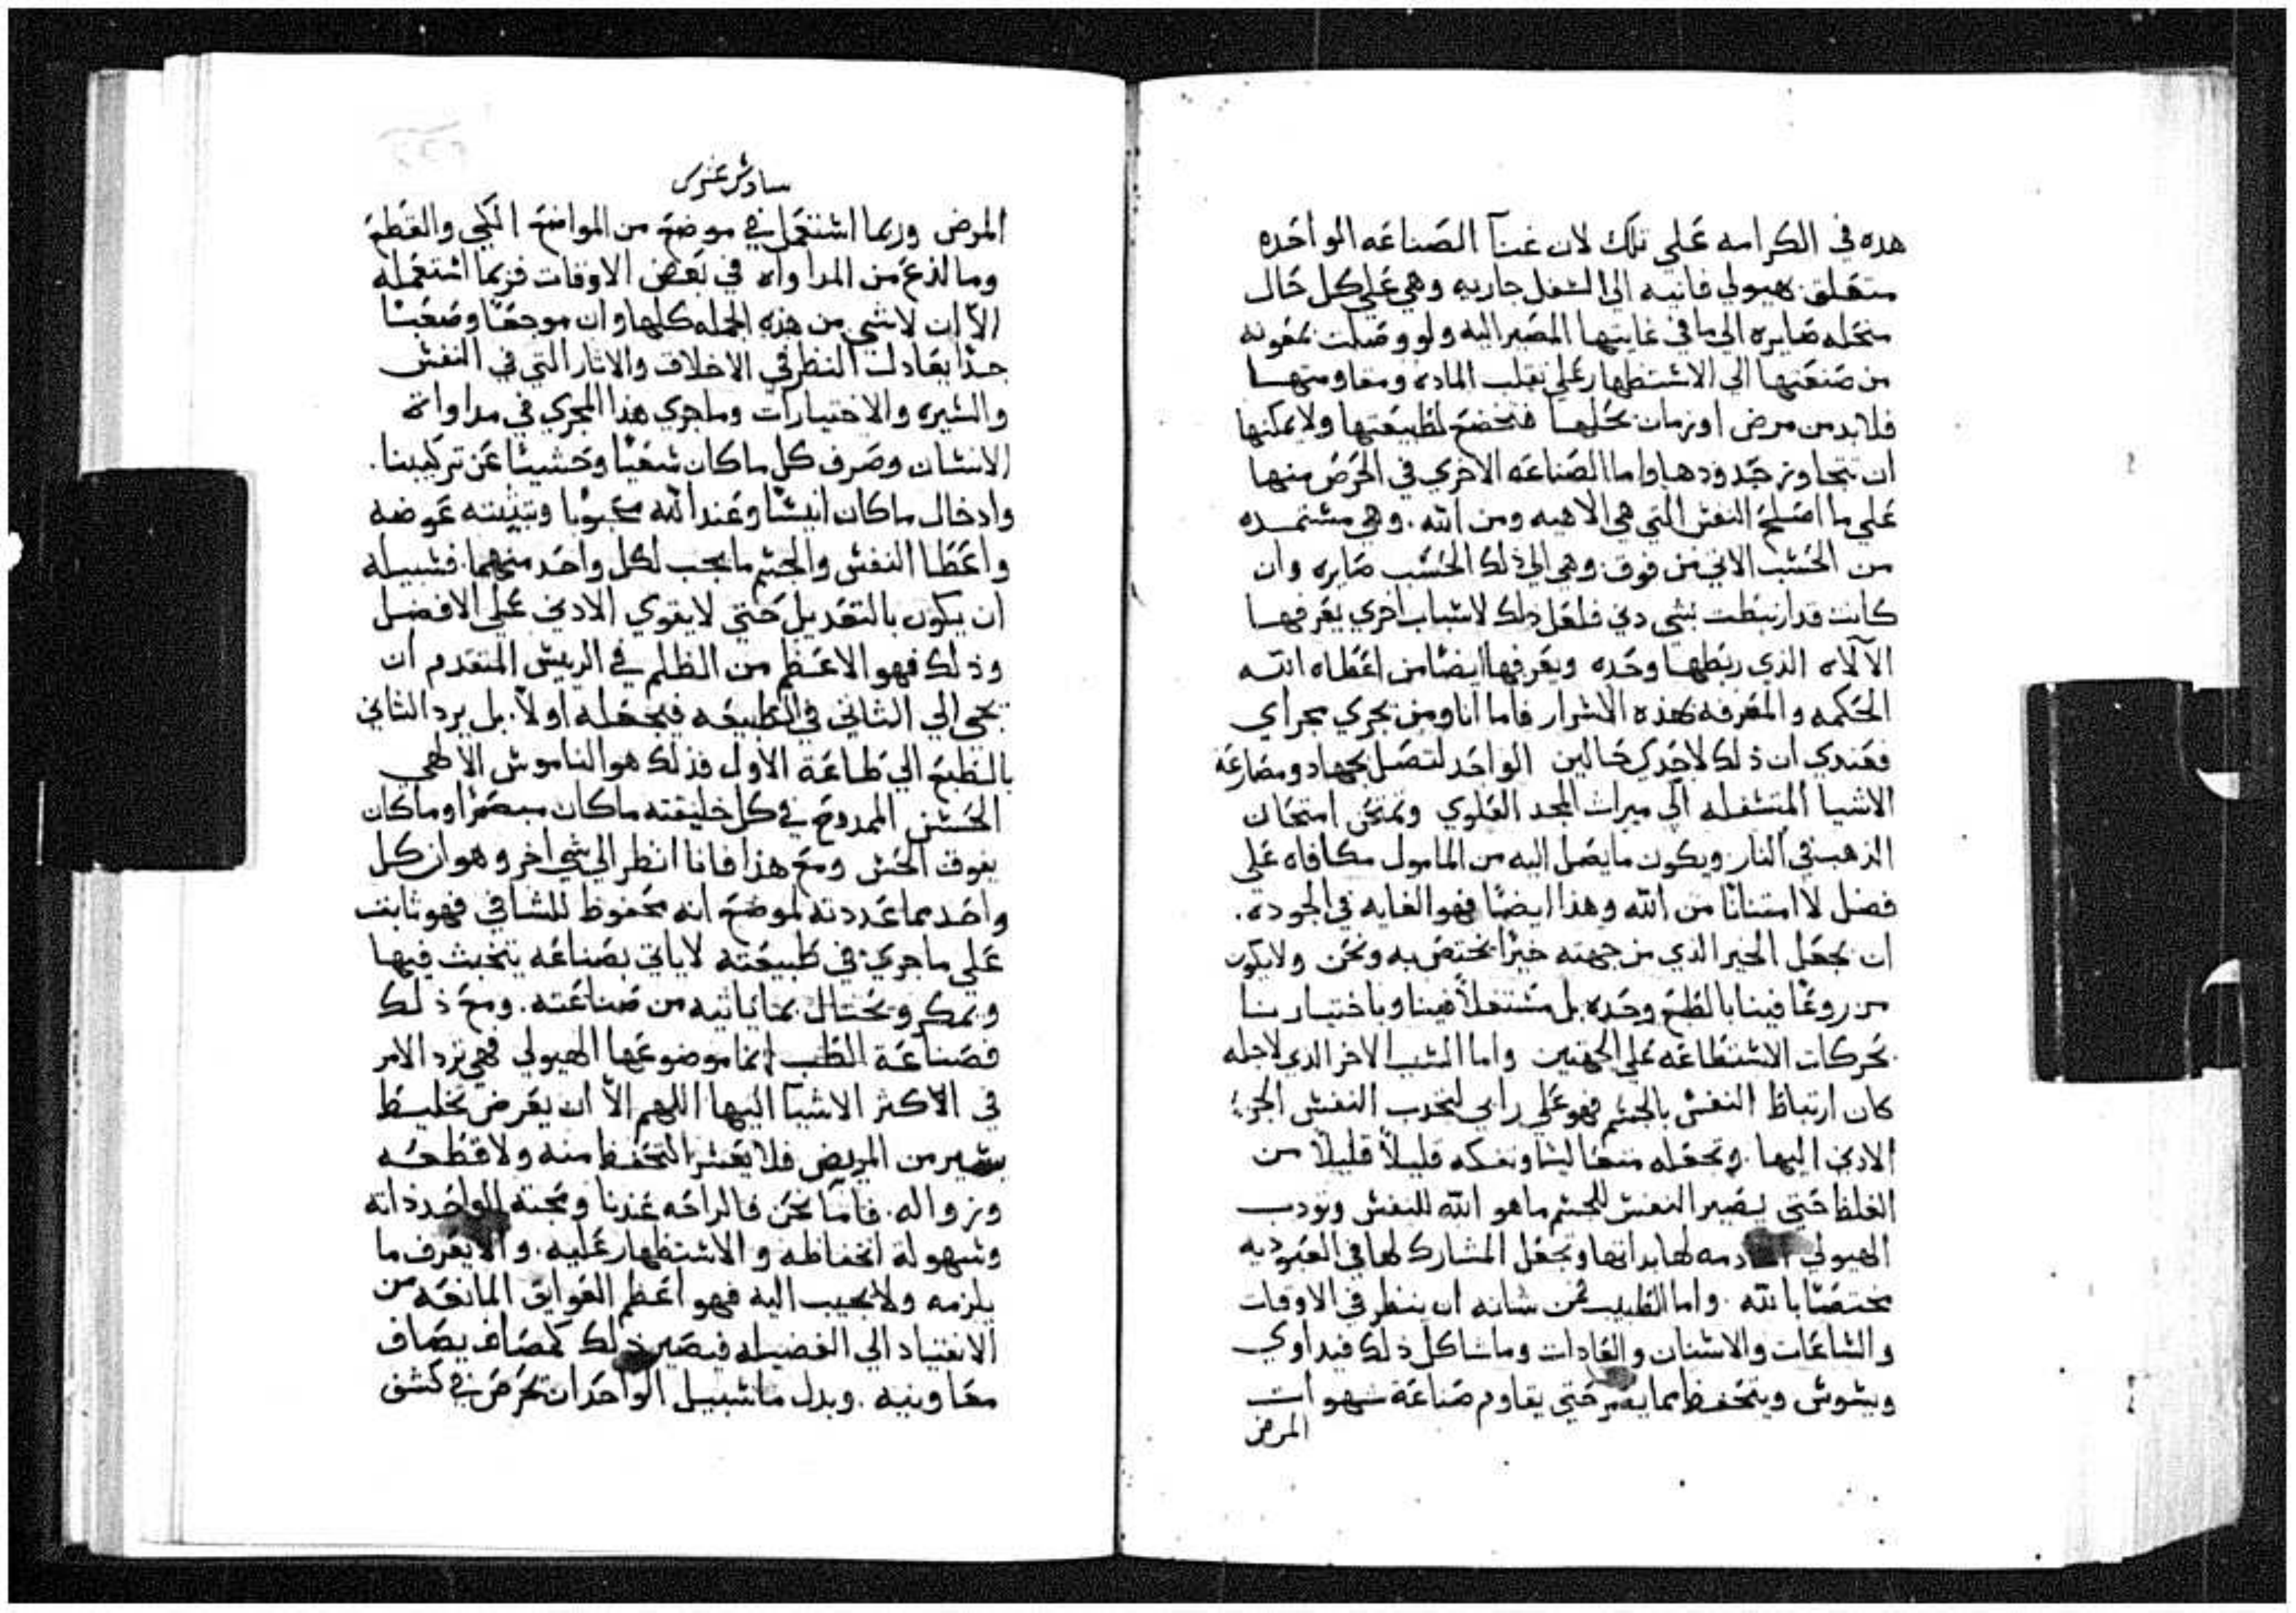 هده في الكرامه علي تلك لان غنآ الصناعه الواحده
متعلق بهيولي فانيه الي السفل جاريه وهي علي كل حال
منحله صايره الي ما في غايتها المصير اليه ولو وصلت بمعونه
من صنعتها الي الاستظهار علي تقلب الماده ومقاومتها
فلابد من مرض او زمان يحلها فتخضع لطبيعتها ولا يمكنها
ان تتجاوز حدودها واما الصناعه الاخري في الحرص منها
علي ما اصلح النفس التي هي الاهيه ومن الله. وهي مستمده
من الحسب الاتي من فوق وهي الي ذلك الحسب صايره وان
كانت قد ارتبطت بشي دني فلعل ذلك لاسباب اخري يعرفها
الآلاه الذي ربطها وحده ويعرفها ايضًا من اعطاه الله
الحكمه والمعرفه بهذه الاسرار فاما انا ومن يجري مجراي
فعندي ان ذلك لاحدي حالين الواحد لتصل بجهاد ومصارعة
الاشيا المتسفله الي ميراث المجد العلوي وتمتحن امتحان
الذهب في النار ويكون ما يصل اليه من المامول مكافاه علي
فضل لا امتنانًا من الله وهذا ايضًا فهو الغايه في الجوده.
ان يجعل الخير الذي من جهته خيرًا يختص به ونحن ولا يكون
مزروعًا فينا بالطبع وحده بل مشتغلاً فينا وباختيارنا
بحركات الاستطاعه علي الجهتين واما السبب الاخر الذي لاجله
كان ارتباط النفس بالجسم فهو علي رابي لتجدب النفس الجزؤ
الادني اليها. وتجعله متعاليًا وتفكه قليلاً قليلاً من
الغلظ حتي يصير النفس للجسم ما هو الله للنفس وتودب
الهيولي الخادمه لها بذاتها وتجعل المشارك لها في العبوديه
مختصًا بالله. واما الطبيب فمن شانه ان ينظر في الاوقات
والساعات والاسنان والعادات وما شاكل ذلك فيداوي
ويسوس ويتحفظ مما يضر حتي يقاوم صناعة شهوات
المرض
سادس عشر
المرض وربما استعمل في موضع من المواضع الكي والقطع
وما لذع من المداواه في بعض الاوقات فربما استعمله
الآ ان لا شي من هذه الجمله كلها وان موجعًا وصعبًا
جدًا يعادل النظر في الاخلاق والاثار التي في النفس
والسيره والاختيارات وما جري هذا المجري في مداواة
الانسان وصرف كل ما كان سبعيًا وحشيًا عن تركيبنا.
وادخال ما كان انيسًا وعند الله محبوبًا وتثبيته عوضه
واعطا النفس والجسم ما يجب لكل واحد منهما. فسبيله
ان يكون بالتعديل حتي لا يقوي الادني علي الافضل
وذلك فهو الاعظم من الظلم في الريس المتقدم ان
يجي الي الثاني في الطبيعه فيجعله اولاً. بل يرد الثاني
بالطبع الي طاعة الاول فذلك هو الناموس الالهي
الحسن الممدوح في كل خليقته ما كان مبصرًا وما كان
يفوق الحس ومع هذا فانا انظر الي شي اخر وهو ان كل
واحد مما عددته لموضع انه محفوظ للشافي فهو ثابت
علي ما جري في طبيعته لا ياتي بصناعه يتخبث فيها
ويمكر ويحتال بما ياتيه من صناعته. ومع ذلك
فصناعة الطب انما موضوعها الهيولي فهي ترد الامر
في الاكثر الاشيآ اليها اللهم الاّ ان يعرض تخليط
يسير من المريض فلا يعسر التحفظ منه ولا قطعه
وزواله. فاما نحن فالراحه عندنا ومحبة الواحد ذاته
وسهولة انحفاظه والاستظهار عليه. والا يعرف ما
يلزمه ولا يجيب اليه فهو اعظم العوايق المانعه من
الانقياد الي الفضيله فيصير ذلك كمصاف يصاف
معاونيه. وبدل ما سبيل الواحد ان يحرص في كشف